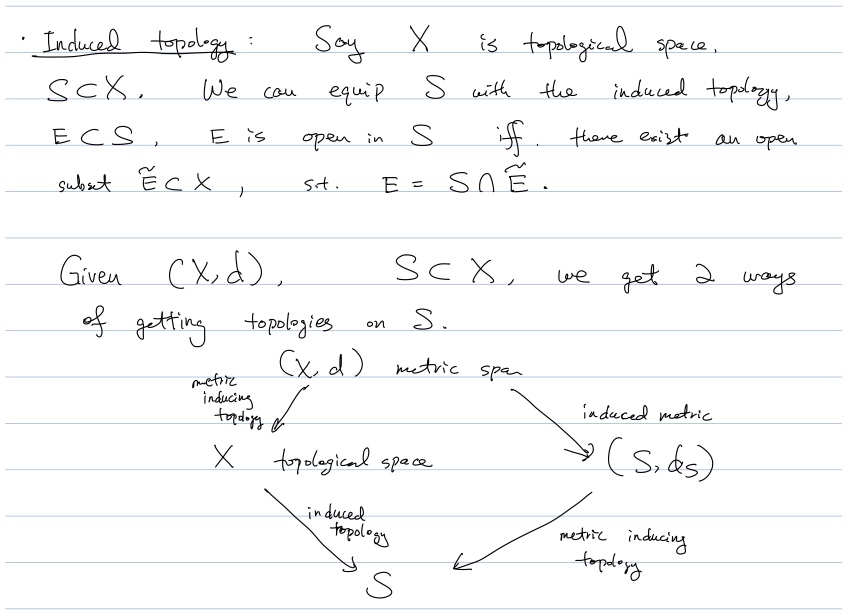 · Induced topology : Say X is topological space,
S⊂X. We can equip S with the induced topology,
E⊂S, E is open in S iff. there exist an open
subset Ẽ⊂X, s.t. E = S∩Ẽ.
Given (X,d), S⊂X, we get 2 ways
of getting topologies on S.
(X,d) metric span
metric
inducing
topology
induced metric
X topological space
(S, ds)
induced
topology
metric inducing
topology
S